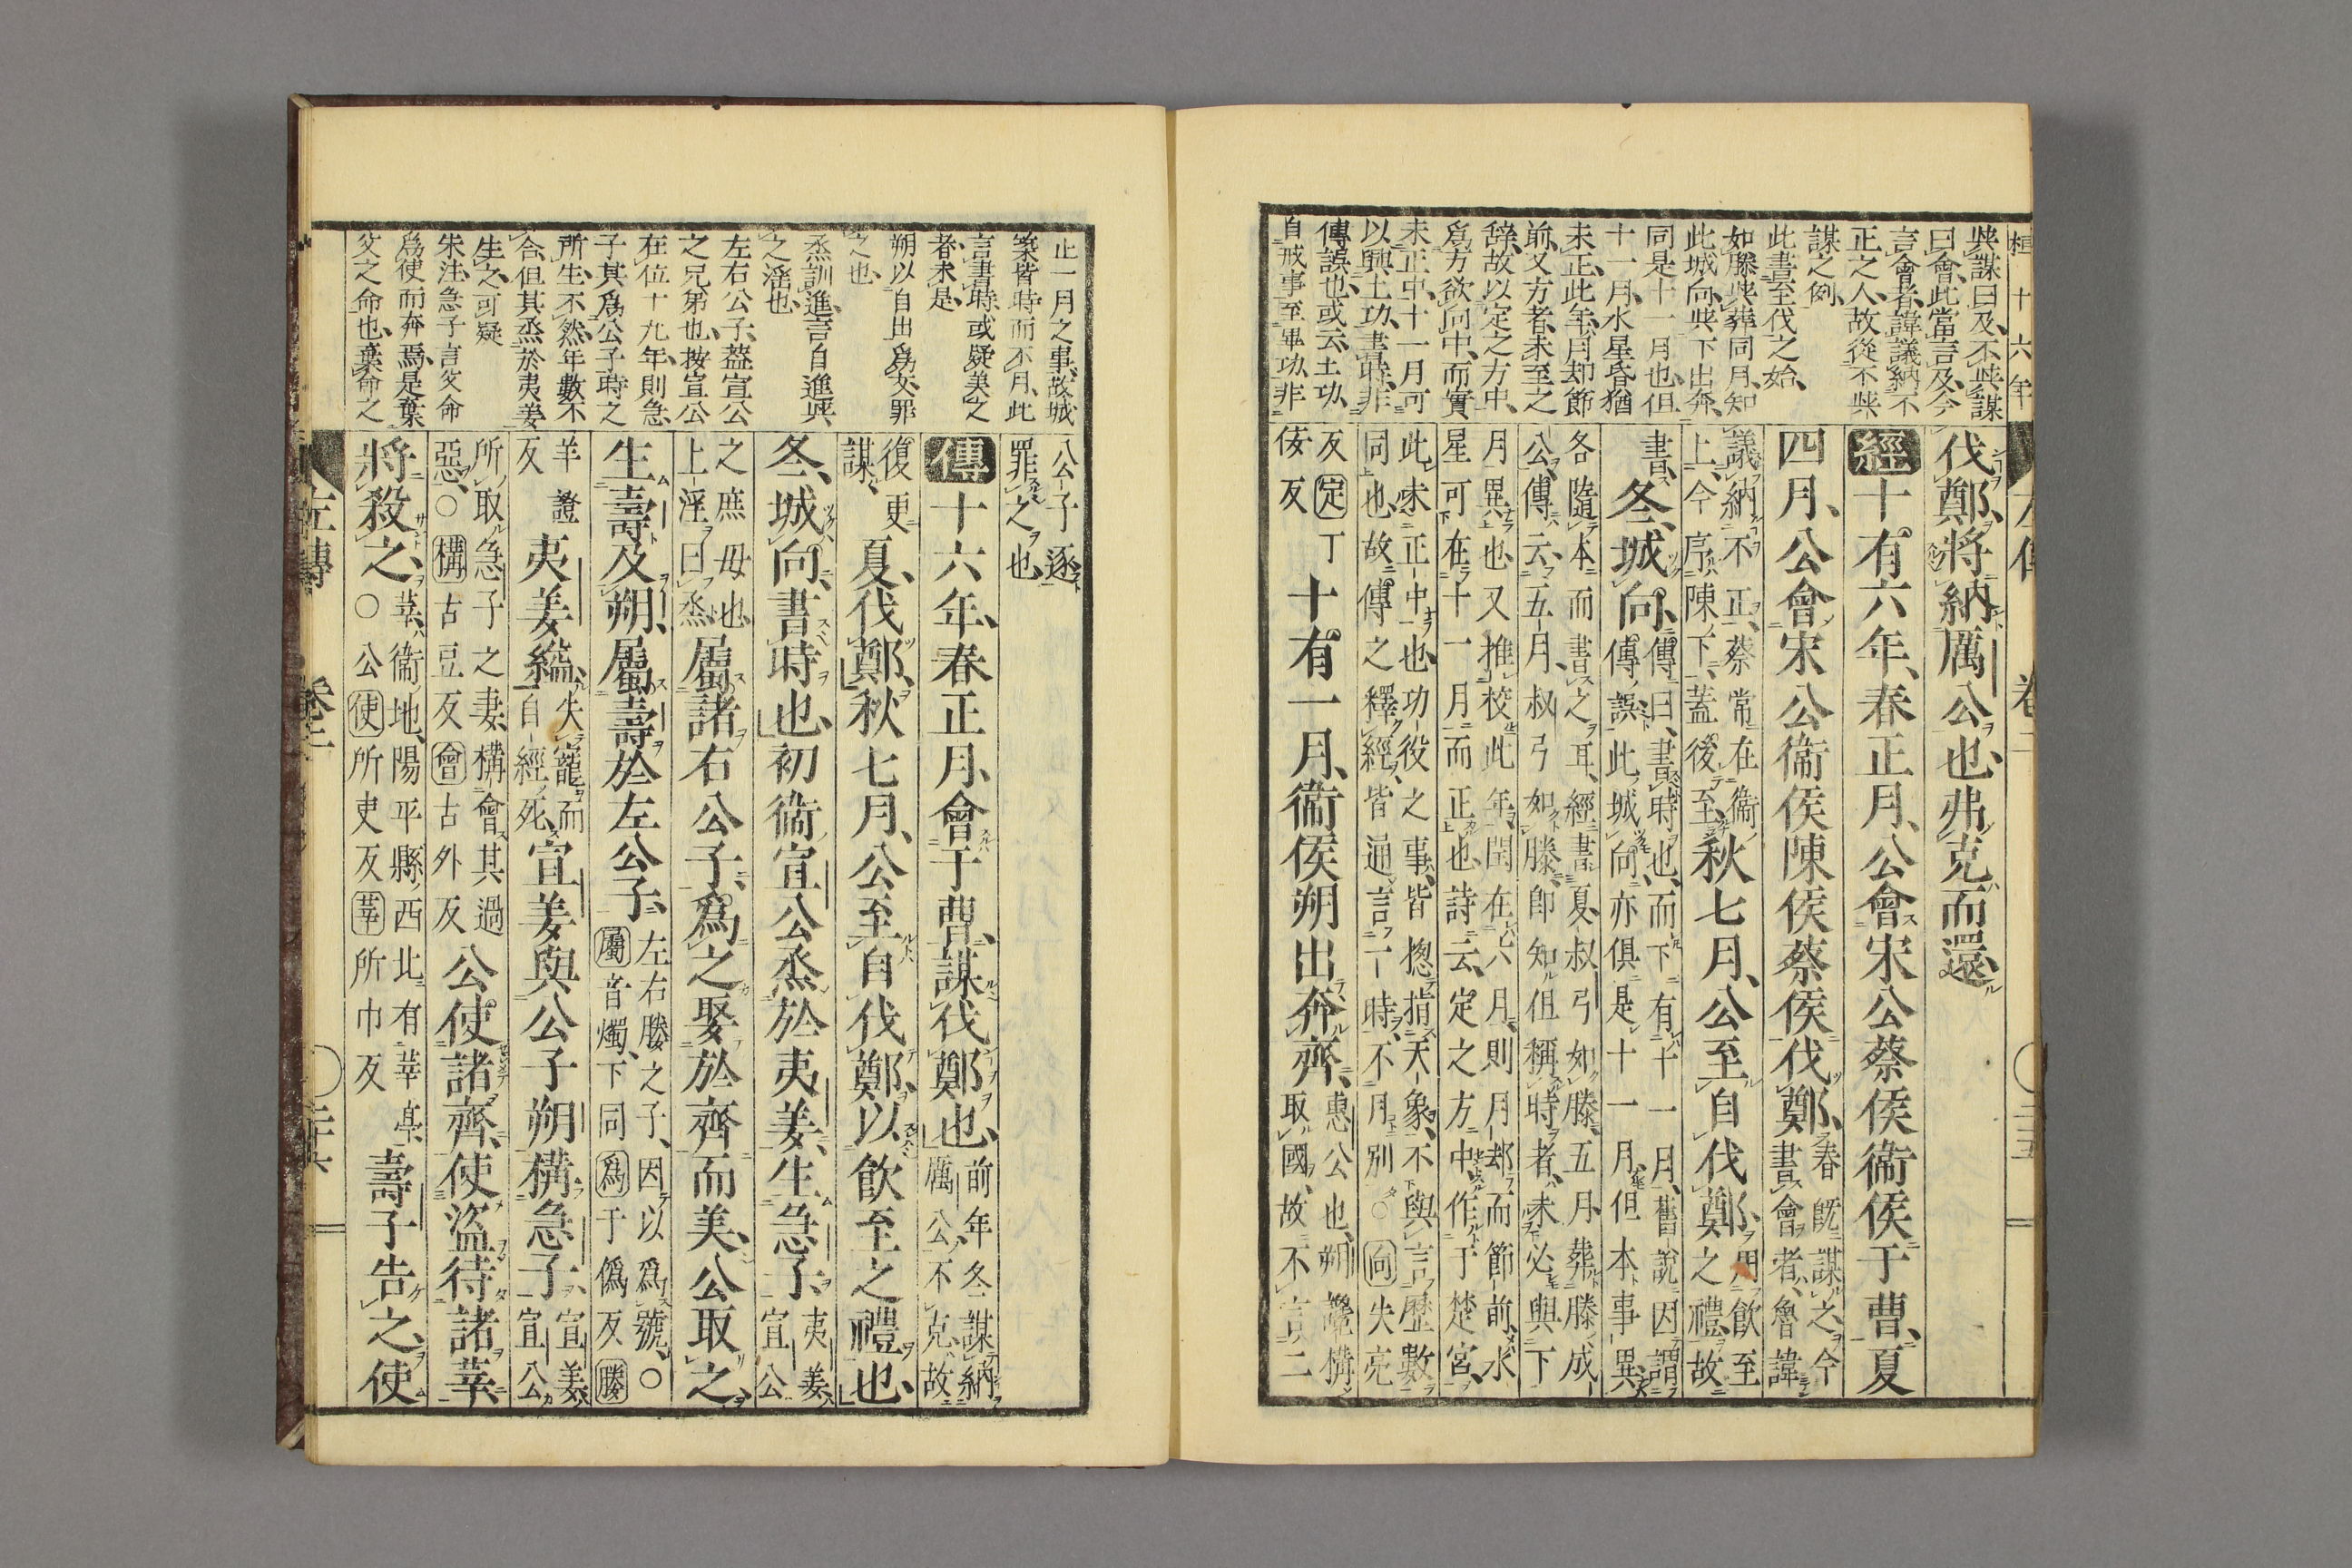 桓十六年
與謀曰及、不與謀
曰會、此當言及、今
言會者、諱議納不
正之人、故從不與
謀之例、
此書至伐之始、
如滕與葬同月、知
此城向與下出奔、
同是十一月也、但
十一月、水星昏猶
未正、此年、月却節
前、又方者、未至之
辭、故以定之方中、
爲方欲向中、而實
未正中、十一月可
以興土功、書時、非
傳誤也、或云、土功
自戒事至畢功、非
伐鄭、將納厲公也、弗克而還、
經十有六年、春正月、公會宋公蔡侯衞侯于曹、夏
四月、公會宋公衞侯陳侯蔡侯伐鄭、春既謀之、今書會者、魯諱
議納不正、蔡常在衞上、今序陳下、蓋後至、秋七月、公至自伐鄭、用飲至之禮、故
書、冬、城向、傳曰、書時也、而下有十一月、舊説因謂傳誤、此城向亦俱是十一月、但本事異、
各隨本而書之耳、經書夏、叔弓如滕、五月、葬滕成
公、傳云、五月、叔弓如滕、即知但稱時者、未必與下
月異也、又推校此年、閏在六月、則月却而節前、水
星可在十一月而正也、詩云、定之方中、作于楚宮、
此未正中也、功役之事、皆揔指天象、不與言歷數
同也、故傳之釋經、皆通言一時、不月別、○向失亮
反定丁佞反十有一月、衞侯朔出奔齊、惠公也、朔讒構取國、故不言二
卷二
二十五
止一月之事、故城
築皆時而不月、此
言書時、或疑美之
者、未是、
朔以自出爲文、罪
之也、
烝訓進、言自進與
之淫也、
左右公子、蓋宣公
之兄弟也、按宣公
在位十九年、則急
子其爲公子時之
所生、不然、年數不
合、但其烝於夷姜
生之、可疑
朱注、急子言父命
爲使而奔焉、是棄
父之命也、棄命之
公子逐
罪之也、
傳十六年、春正月、會于曹、謀伐鄭也、前年冬、謀納厲公、不克、故
復更謀、夏、伐鄭、秋七月、公至自伐鄭、以飲至之禮也、
冬、城向、書時也、初衞宣公烝於夷姜、生急子、夷姜、宣公
之庶母也、上淫曰烝、屬諸右公子、爲之娶於齊而美、公取之、
生壽及朔、屬壽於左公子、左右媵之子、因以爲號、○屬音燭、下同爲于僞反媵
羊證反夷姜縊、失寵而自經死、宣姜與公子朔構急子、宣姜、宣公
所取急子之妻、構會其過惡、○構古豆反會古外反公使諸齊、使盜待諸莘、
將殺之、莘、衞地、陽平縣西北有莘亭、○公使所吏反莘所巾反壽子告之、使
左傳
卷二
二十六